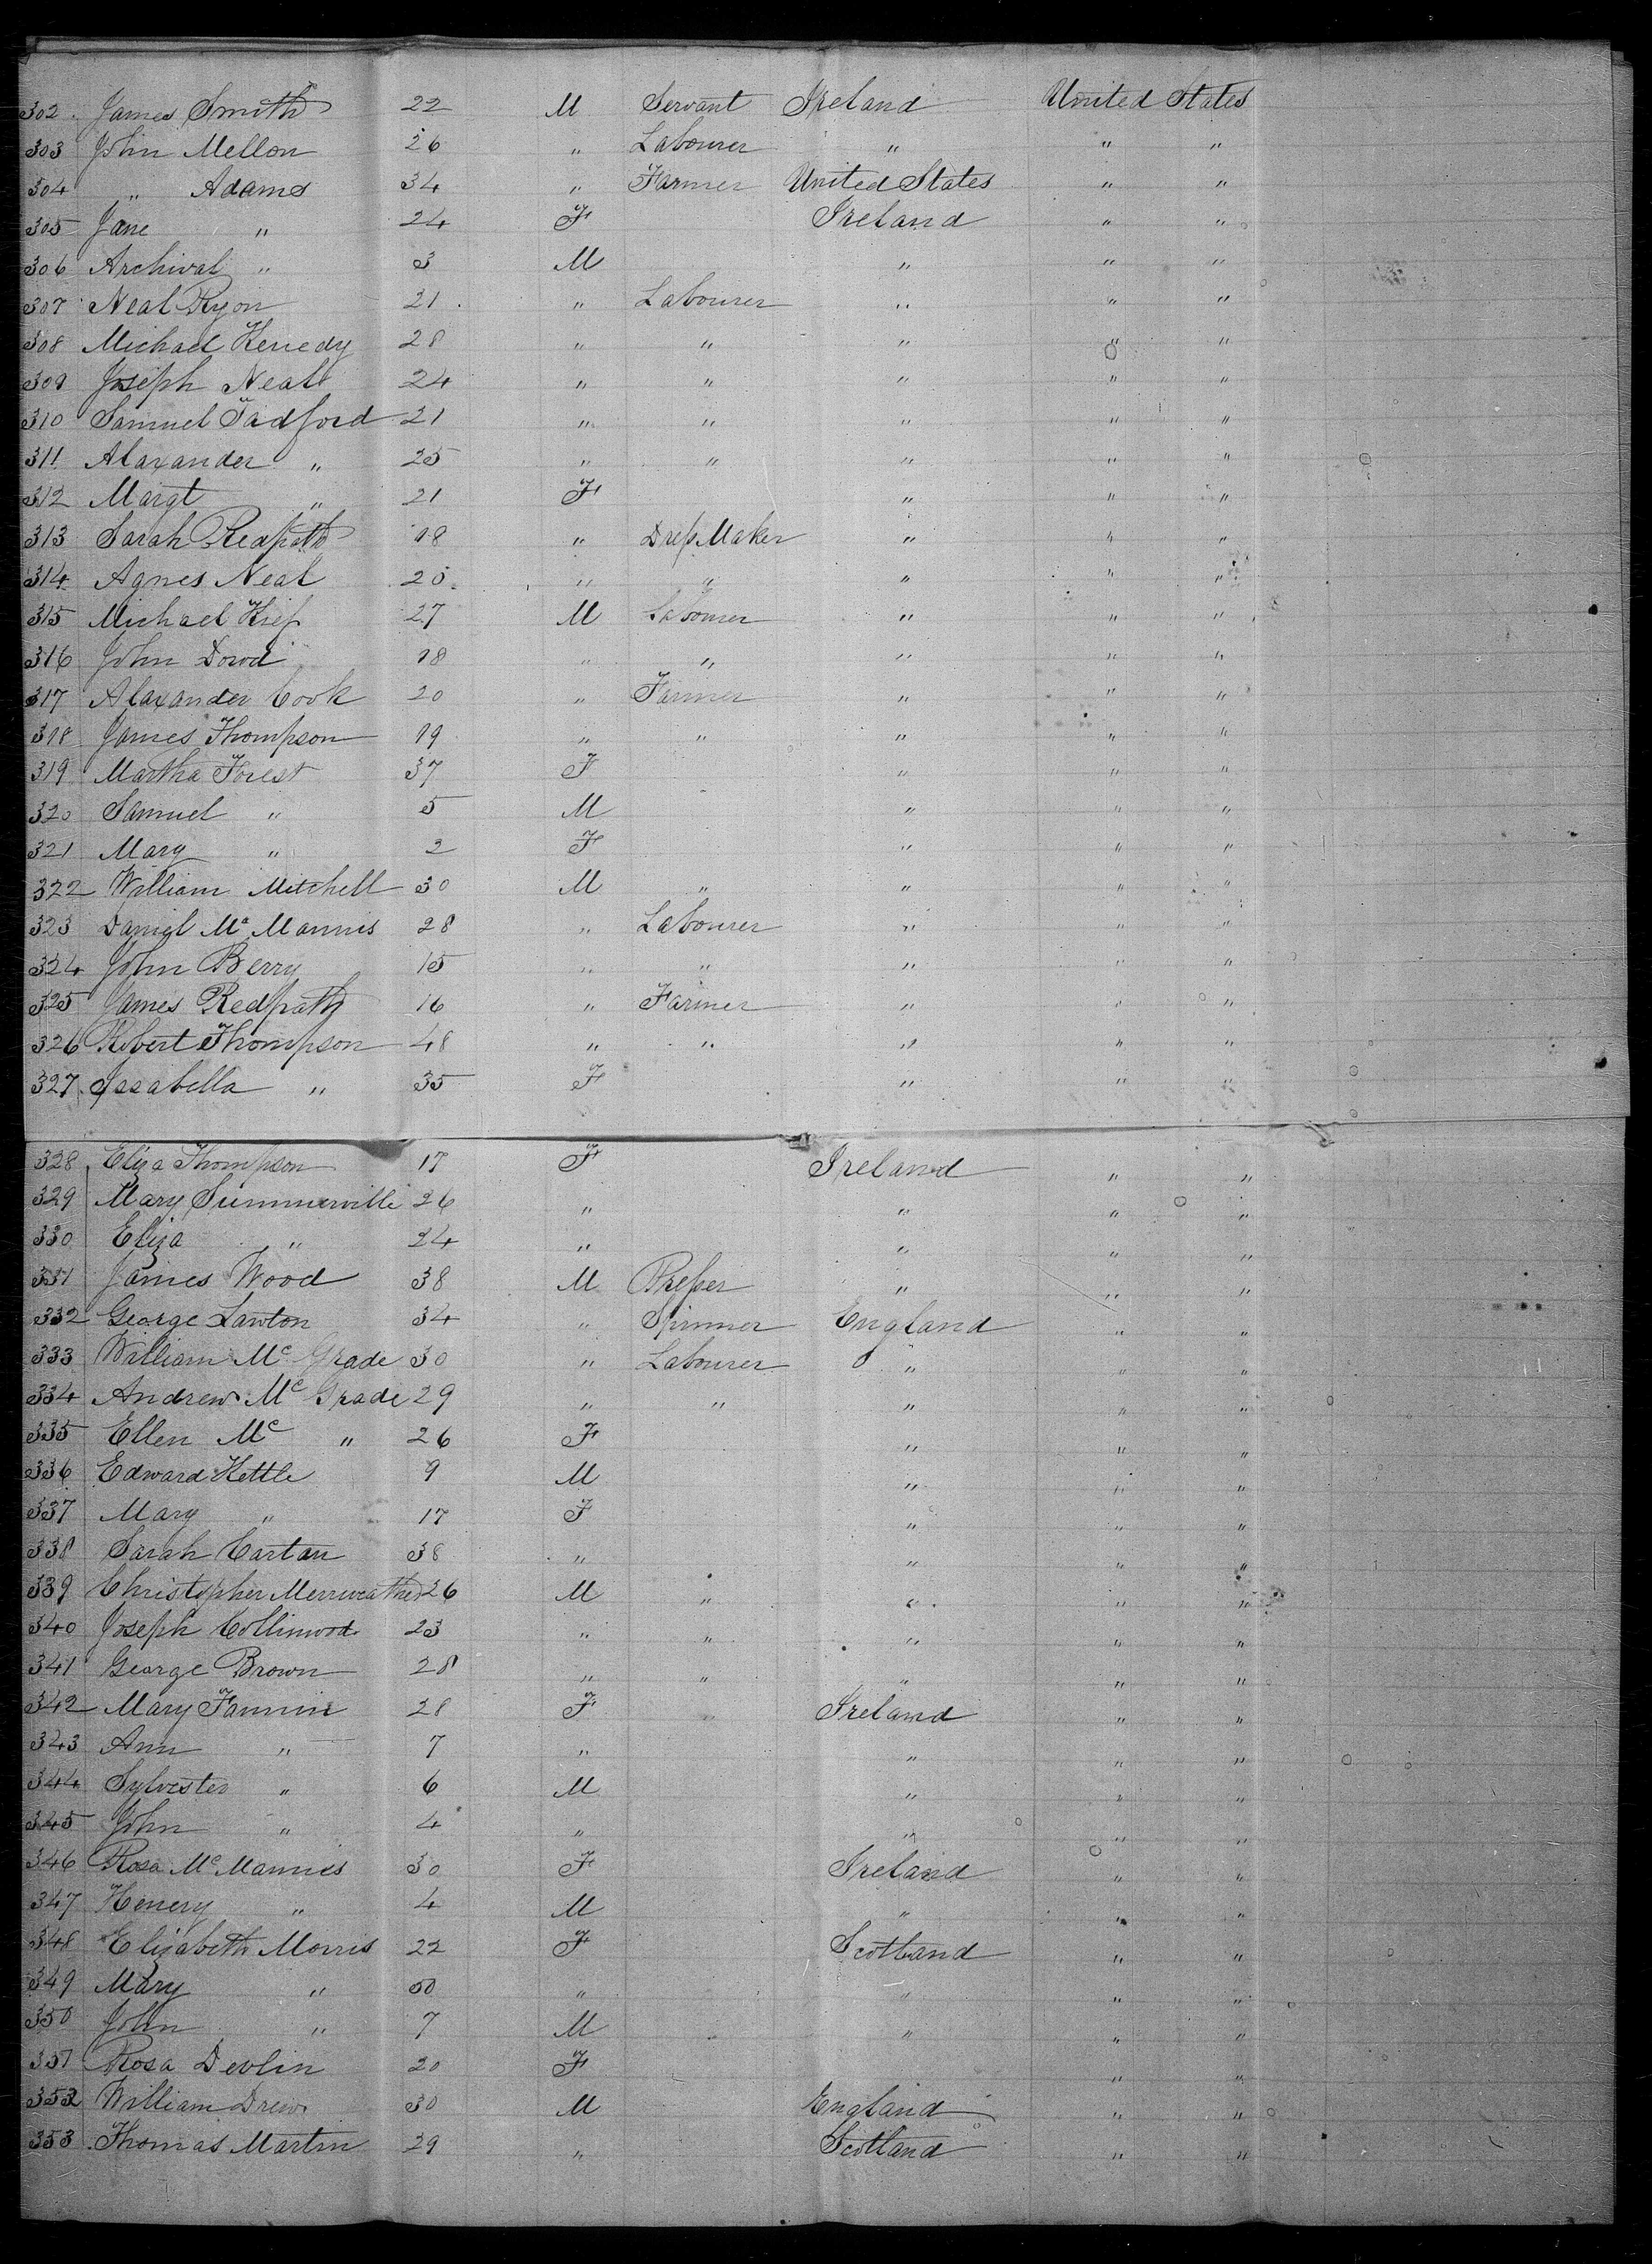 302 James Smith 22 M Servant Ireland United States
303 John Mellon 26 " Labourer " " "
304 " Adams 34 " Farmer United States " "
305 Jane " 24 F Ireland " "
306 Archival " 3 M " " "
307 Neal Ryon 21 " Labourer " " "
308 Michael Kenedy 28 " " " " "
309 Joseph Neal 24 " " " " "
310 Samuel Tadford 21 " " " " "
311 Alaxander " 25 " " " " "
312 Margt " 21 F " " "
313 Sarah Redpath 18 " Dress Maker " " "
314 Agnes Neal 20 " " " " "
315 Michael 27 M Labourer " " "
316 John Dowd 18 " " " " "
317 Alaxander Cook 20 " Farmer " " "
318 James Thompson 19 " " " " "
319 Martha Forest 37 F " " "
320 Samuel " 5 M " " "
321 Mary " 2 F " " "
322 William Mitchell 30 M " " " "
323 Daniel Mc Mannis 28 " Labourer " " "
324 John Berry 15 " " " " "
325 James Redpath 16 " Farmer " " "
326 Robert Thompson 48 " " " " "
327 Issabella " 35 F " " "
328 Eliza Thompson 17 F Ireland " "
329 Mary Summerville 26 " " " "
330 Eliza " 24 " " " "
331 James Wood 38 M " " "
332 George Lawton 34 " Spinner England " "
333 William Mc Grade 30 " Labourer " " "
334 Andrew Mc Grade 29 " " " " "
335 Ellen Mc " 26 F " " "
336 Edward Kettle 9 M " " "
337 Mary " 17 F " " "
338 Sarah Cartan 38 " " " "
339 Christopher Merriweather 26 M " " " "
340 Joseph Collinwood 23 " " " " "
341 George Brown 28 " " " " "
342 Mary Fannin 28 F Ireland " "
343 Ann " 7 " " " "
344 Sylvester " 6 M " " "
345 John " 4 " " " "
346 Rosa Mc Mannies 30 F Ireland " "
347 Henery " 4 M " " "
348 Elizabeth Morris 22 F Scotland " "
349 Mary " 50 " " " "
350 John " 7 M " " "
351 Rosa Devlin 20 F " "
352 William Drew 30 M England " "
353 Thomas Martin 29 " Scotland " "